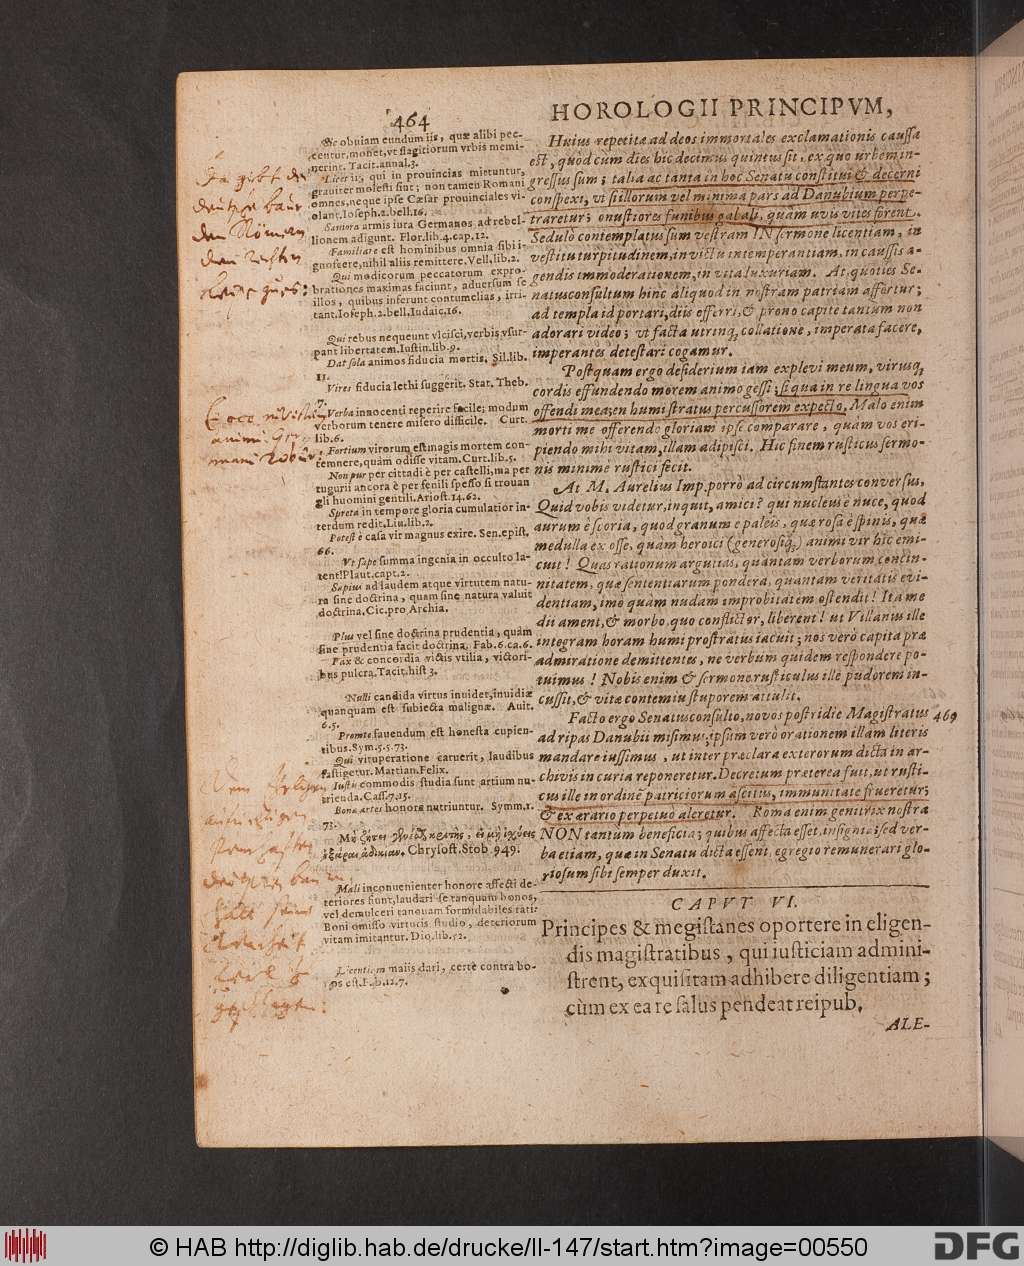 464
HOROLOGII PRINCIPVM,
Sic obviam eundum iis, quæ alibi pec-
centur, monet, vt flagitiorum vrbis memi-
nerint. Tacit. annal. 3.
Licet ii, qui in prouincias mittuntur,
grauiter molesti sint; non tamen Romani
omnes, neque ipse Cæsar prouinciales vi-
olant. Ioseph. 2. bell. 16.
armis iura Germanos ad rebel-
lionem adigunt. Flor. lib. 4. cap. 12.
Familiare est hominibus omnia sibi i-
gnoscere, nihil aliis remittere. Vell. lib. 2.
Qui modicorum peccatorum expro-
brationes maximas faciunt, aduersum se
illos, quibus inferunt contumelias, irri-
tant. Ioseph. 2. bell. Iudaic. 16.
Qui rebus nequeunt vlcisci, verbis vsur-
pant libertatem. Iustin. lib. 9.
Dat sola animos fiducia mortis. Sil. lib.
11.
Vires fiducia lethi suggerit. Stat. Theb.
7.
Verba innocenti reperire facile; modum
verborum tenere misero difficile. Curt.
lib. 6.
Fortium virorum est magis mortem con-
temnere, quàm odisse vitam. Curt. lib. 5.
Non pur per cittadi è per castelli, ma per
tugurii ancora è per fenili spesso si trouan
gli huomini gentili. Ariost. 14. 62.
Spreta in tempore gloria cumulatior in-
terdum redit. Liu. lib. 2.
Potest è casa vir magnus exire. Sen. epist.
66.
Vt sæpe summa ingenia in occulto la-
tent! Plaut. capt. 2.
Sæpius ad laudem atque virtutem natu-
ra sine doctrina, quam sine natura valuit
doctrina. Cic. pro Archia.
Plus vel sine doctrina prudentia, quàm
sine prudentia facit doctrina. Fab. 6. ca. 6.
Pax & concordia victis vtilia, victori-
bus pulcra. Tacit. hist 3.
Nulli candida virtus inuidet, inuidiæ
quanquam est subiecta malignæ. Auit.
6. 5.
Promte fauendum est honesta cupien-
tibus. Sym. 5. 5. 73.
Qui vituperatione caruerit, laudibus
fastigetur. Martian. Felix.
Iustis commodis studia sunt artium nu-
trienda. Cass. 7. 15.
Bonæ artes honore nutriuntur. Symm. 1.
73.
Μὴ ζήτει γενέσθαι κριτὴς, εἰ μὴ ἰσχύεις
ἐξᾶραι ἀδικίαν. Chrysost. Stob. 949.
Mali inconuenienter honore affecti de-
teriores fiunt, laudari se tanquam bonos,
vel demulceri tanquam formidabiles rati:
Boni omisso virtutis studio, deteriorum
vitam imitantur. Dio. lib. 52.
Licentiam malis dari, certè contra bo-
nos est. Fab. 12. 7.
Huius repetitæ ad deos immortales exclamationis caussa
est, quod cum dies hic decimus quintus sit, ex quo urbem in-
gressus sum; talia ac tanta in hoc Senatu constitui & decerni
conspexi, vt si illorum vel minima pars ad Danubium perpe-
traretur; onustiores funibus gabali, quàm uvis vites forent.
Sedulò contemplatus sum vestram IN sermone licentiam, in
vestitu turpitudinem, in victu intemperantiam, in caussis a-
gendis immoderationem, in vita luxuriam. At, quoties Se-
natusconsultum hinc aliquod in nostram patriam affertur;
ad templa id portari, diis offerri, & prono capite tantum non
adorari video; vt facta utrinq; collatione, imperata facere,
imperantes detestari cogamur.
Postquam ergo desiderium iam explevi meum, virusq;
cordis effundendo morem animo gessi; si qua in re lingua vos
offendi mea; en humi stratus percussorem expecto. Malo enim
morti me offerendo gloriam ipse comparare, quàm vos eri-
piendo mihi vitam, illam adipisci. Hic finem rusticus sermo-
nis minimè rustici fecit.
At M. Aurelius Imp. porrò ad circumstantes conversus,
Quid vobis videtur, inquit, amici? qui nucleus è nuce, quod
aurum è scoria, quod granum è paleis, quæ rosa è spinis, quæ
medulla ex osse, quàm heroici (generosiq;) animi vir hic emi-
cuit! Quas rationum argutias, quàntam verborum concin-
nitatem, quæ sententiarum pondera, quantam veritatis evi-
dentiam, imo quàm nudam improbitatem ostendit! Ita me
dii ament, & morbo, quo conflictor, liberent! ut Villanus ille
integram horam humi prostratus iacuit; nos verò capita præ
admiratione demittentes, ne verbum quidem respondere po-
tuimus! Nobis enim & sermone rusticulus ille pudorem in-
cussit, & vitæ contemtu stuporem attulit.
Facto ergo Senatusconsulto, novos postridie Magistratus
469
ad ripas Danubii misimus; ipsum verò orationem illam literis
mandare iussimus, ut inter præclara exterorum dicta in ar-
chivis in curia reponeretur. Decretum præterea fuit, ut rusti-
cus ille in ordinē patriciorum ascitus, immunitate frueretur;
& ex ærario perpetuò aleretur. Roma enim genitrix nostra
NON tantum beneficia; quibus affecta esset, insignia; sed ver-
ba etiam, quæ in Senatu dicta essent, egregiò remunerari glo-
riosum sibi semper duxit.
CAPVT VI.
Principes & megistanes oportere in eligen-
dis magistratibus, qui iusticiam admini-
strent, exquisitam adhibere diligentiam;
cùm ex ea re salus pendeat reipub.
ALE-
© HAB http://diglib.hab.de/drucke/ll-147/start.htm?image=00550
DFG